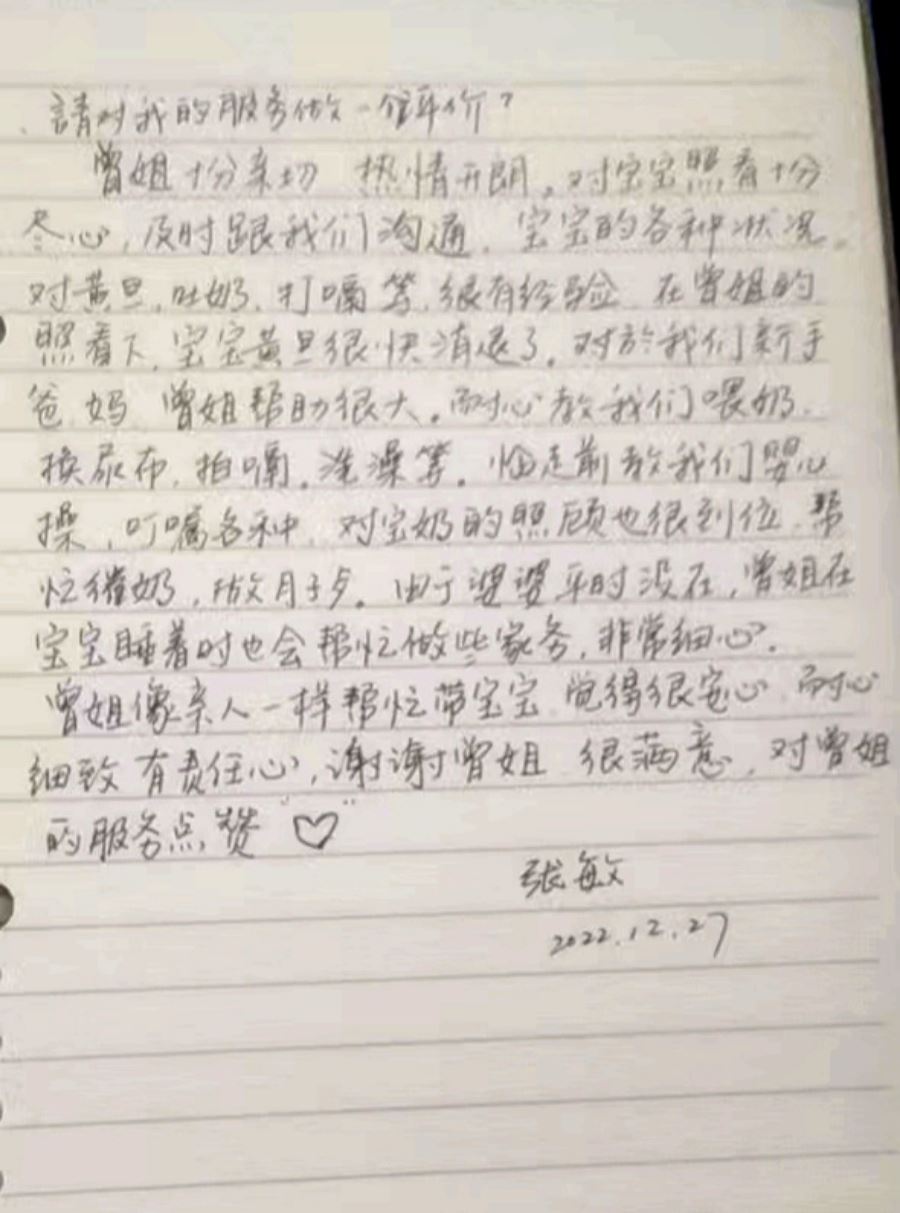 請对我的服务做一个评价?
曾姐十份亲切 热情开朗。对宝宝照看十份
尽心,及时跟我们沟通,宝宝的各种状况。
对黄旦,吐奶,打嗝等,很有经验 在曾姐的
照看下,宝宝黄旦很快消退了,对於我们新手
爸妈 曾姐帮助很大。耐心教我们喂奶,
换尿布,拍嗝,洗澡等。临走前教我们婴儿
操,叮嘱各种,对宝奶的照顾也很到位,帮
忙催奶,做月子歺。由于婆婆平时没在,曾姐在
宝宝睡着时也会帮忙做些家务,非常细心。
曾姐像亲人一样帮忙带宝宝 觉得很安心 耐心
细致 有责任心,谢谢曾姐 很满意,对曾姐
的服务点赞“♡”
张敏
2022.12.27